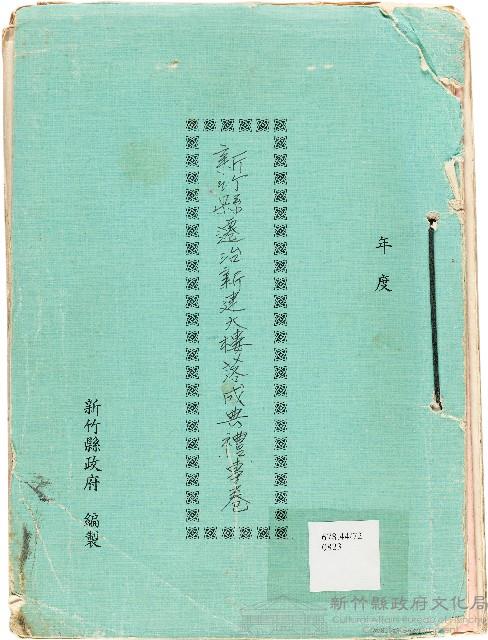 年度
新竹縣遷治新建大樓落成典禮專卷
新竹縣政府 編製
678.44/72
0823
新竹縣政府文化局
Cultural Affairs Bureau of Hsinchu